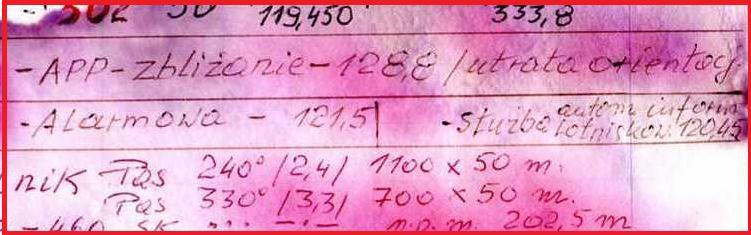 502 50 119,450 333,8
- APP - zbliżanie - 128,8 / utrata orientacj.
- Alarmowa - 121,5 | - Służba autom. inform. lotniskow. 120,45
nik Pas 240° /2,4/ 1100 x 50 m.
Pas 330° /3,3/ 700 x 50 m.
- 460 SK n.p.m. 202,5 m